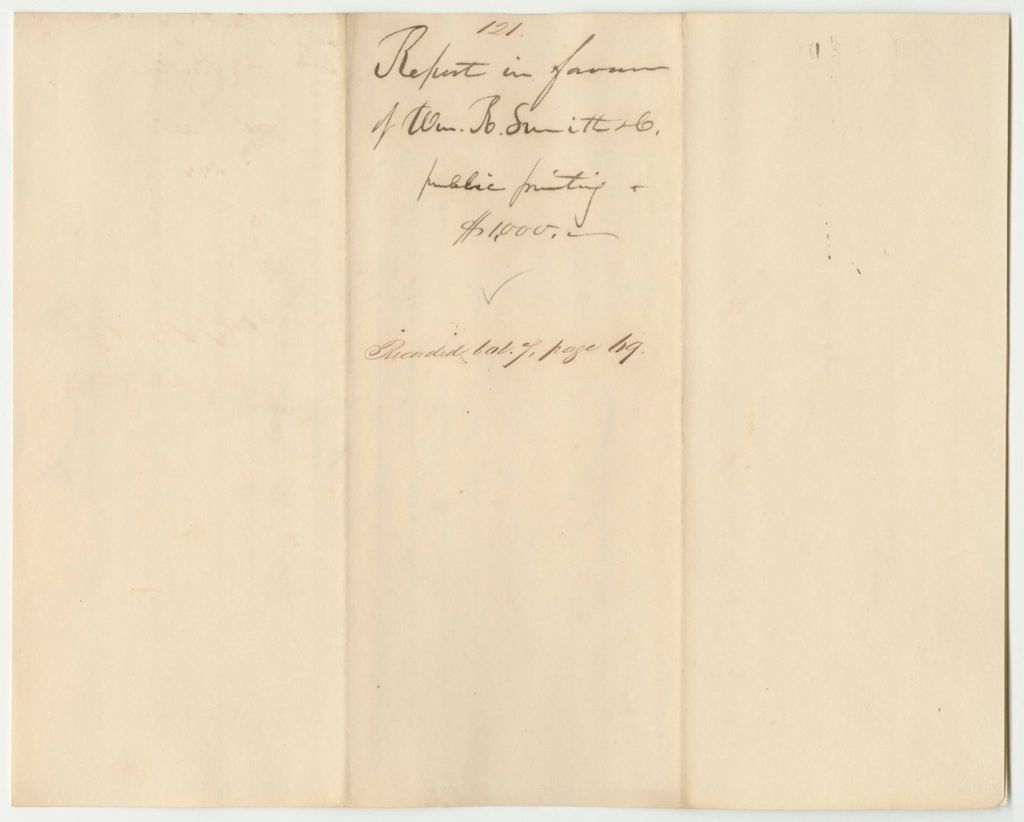 121.
Report in favour
of Wm. R. Smith & C.
public printing -
$1,000. -
Recorded Vol. 7, page 49.